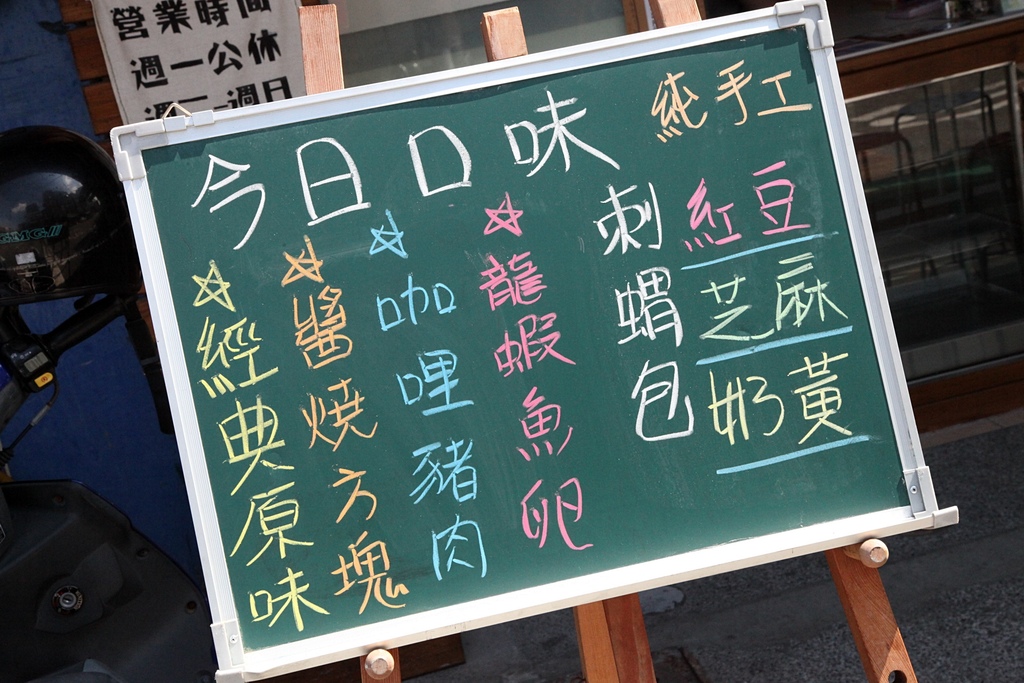 營業時間
週一公休
今日口味
純手工
紅豆
芝麻
奶黃
刺蝟包
☆龍蝦魚卵
☆咖哩豬肉
☆醬燒方塊
☆經典原味